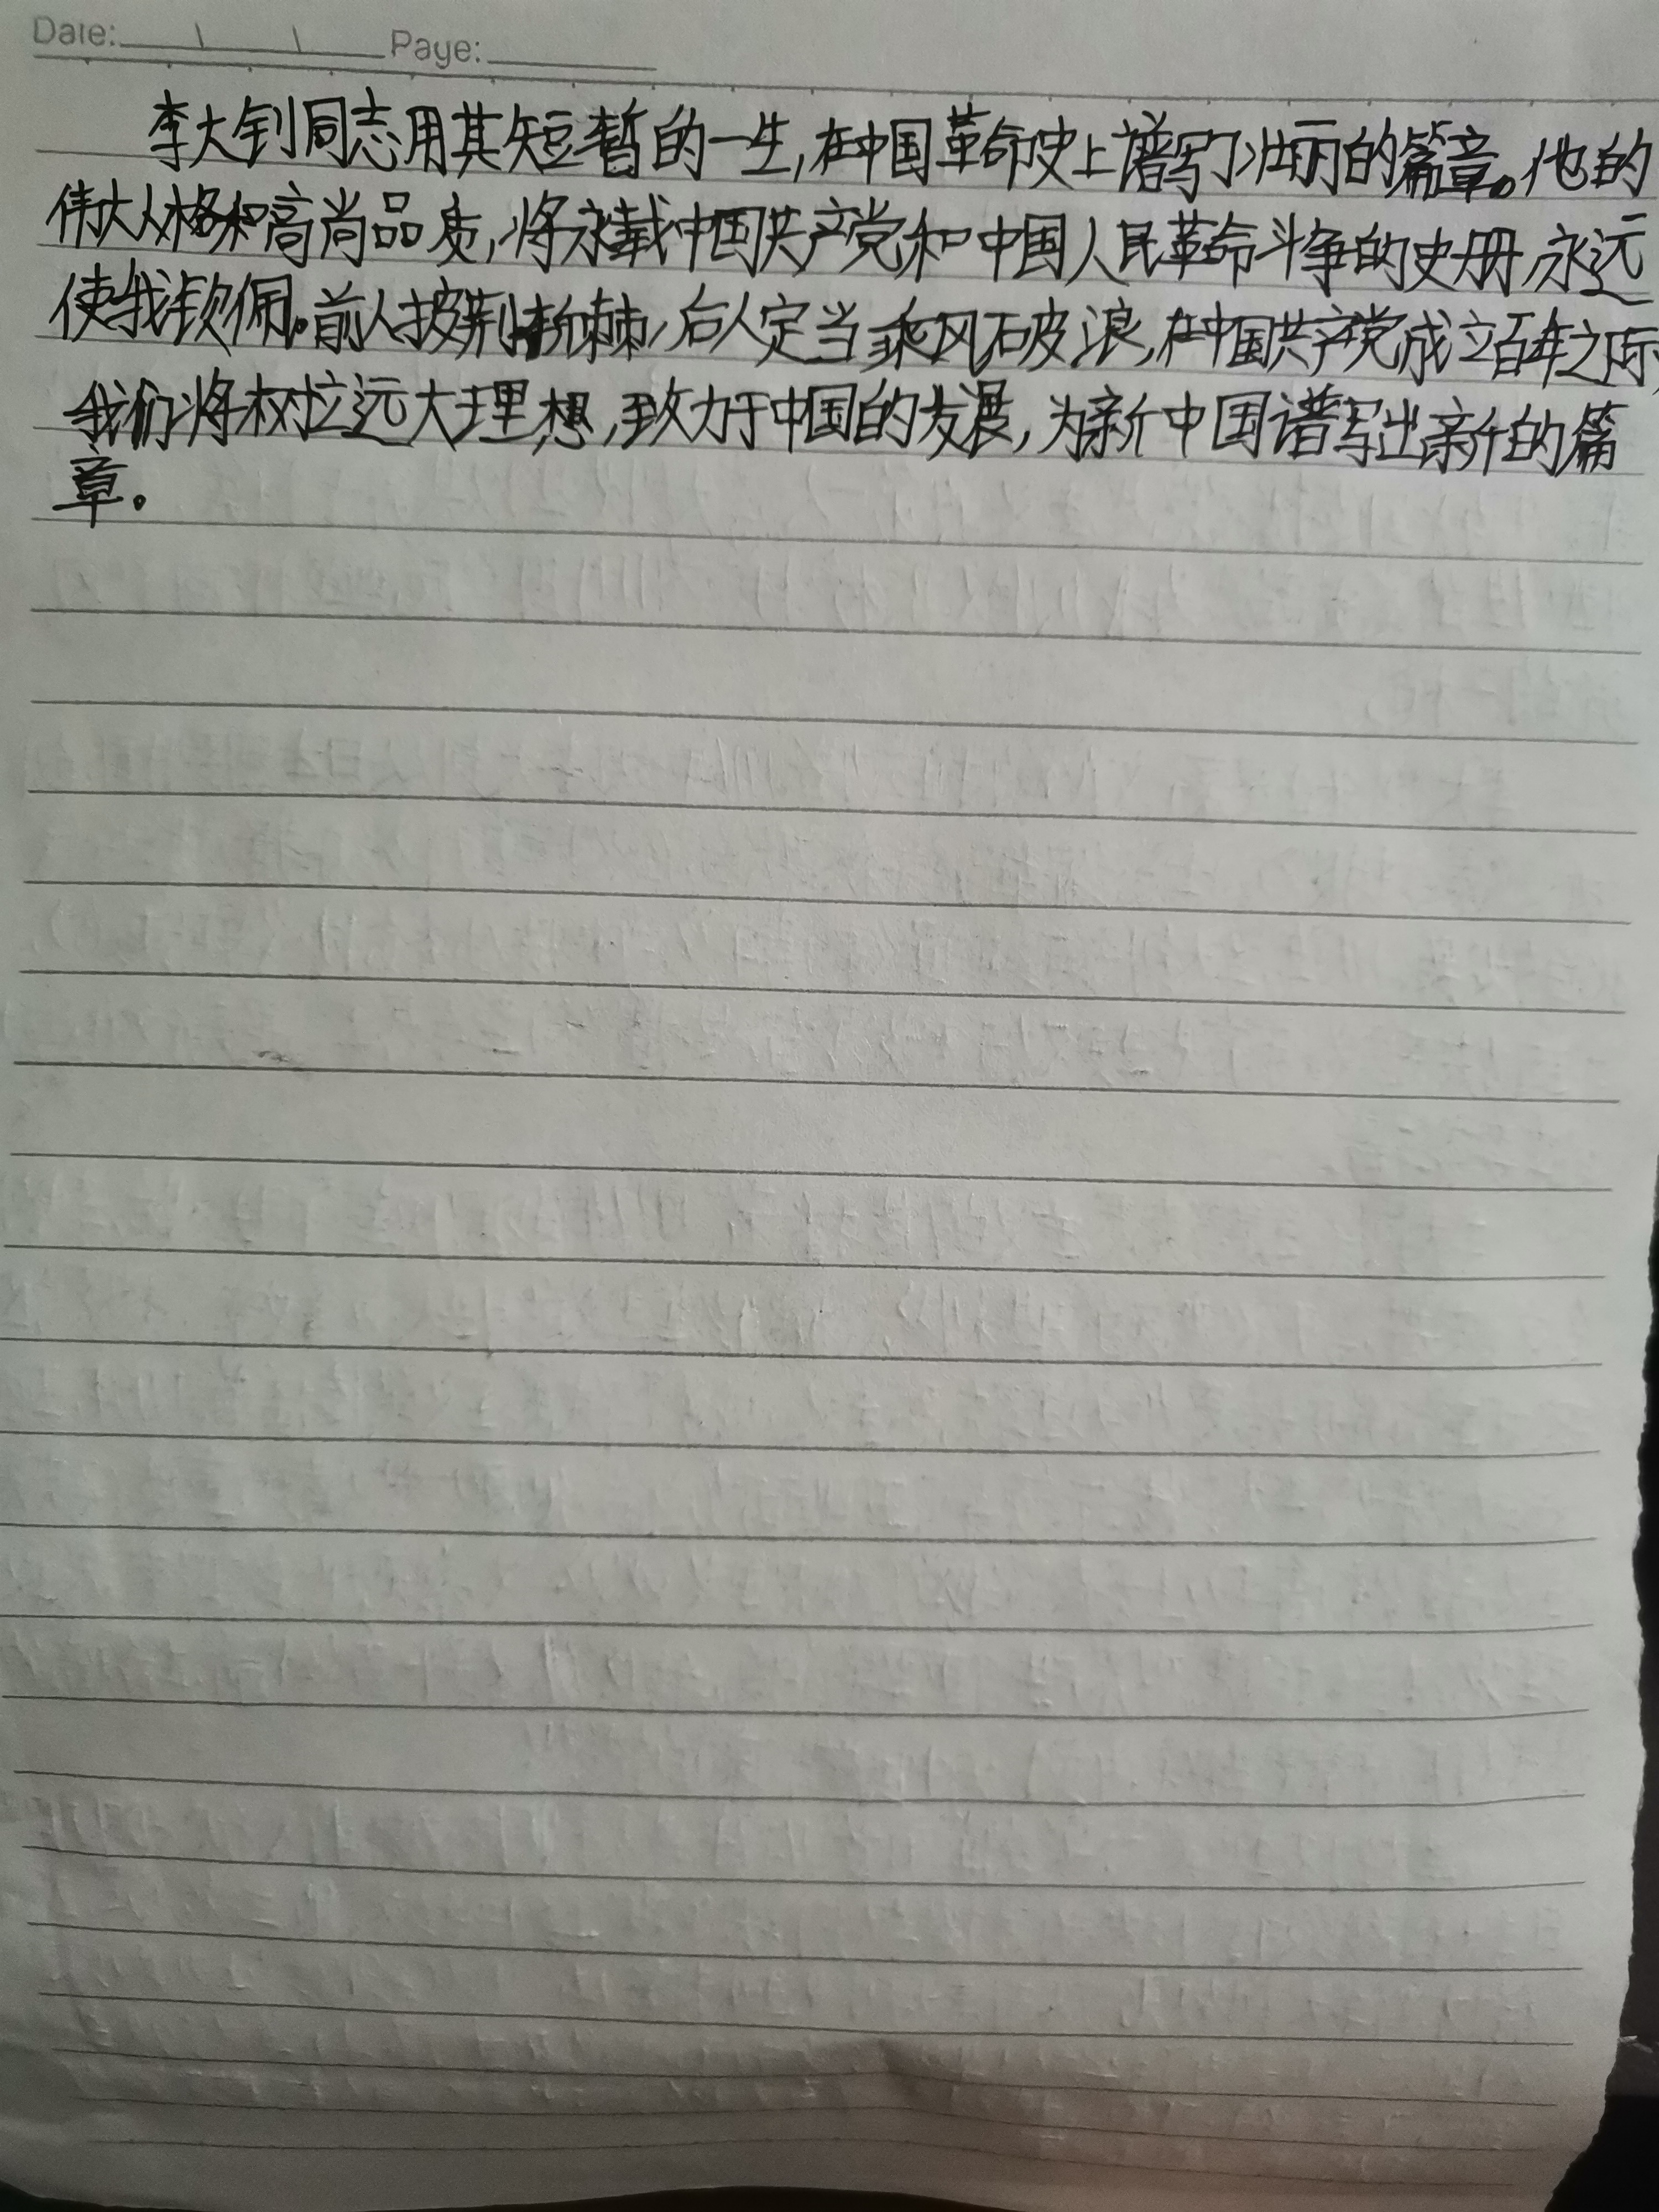 Date: Page:
李大钊同志用其短暂的一生,在中国革命史上谱写了壮丽的篇章。他的
伟大人格和高尚品质,将永载中国共产党和中国人民革命斗争的史册,永远
使我钦佩。前人披荆斩棘,后人定当乘风破浪,在中国共产党成立百年之际,
我们将树立远大理想,致力于中国的发展,为新中国谱写出新的篇
章。